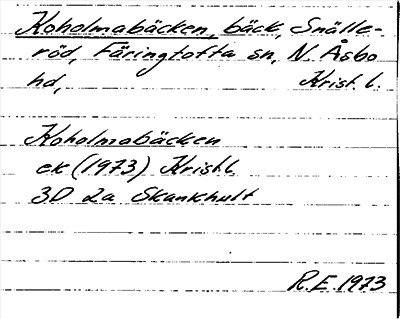 Koholmabäcken, bäck, Snälle-
röd, Färingtofta sn, N. Åsbo
hd, Krist. l.
Koholmabäcken
ek (1973) Krist. l.
3D 2a Skånkhult
R.E. 1973